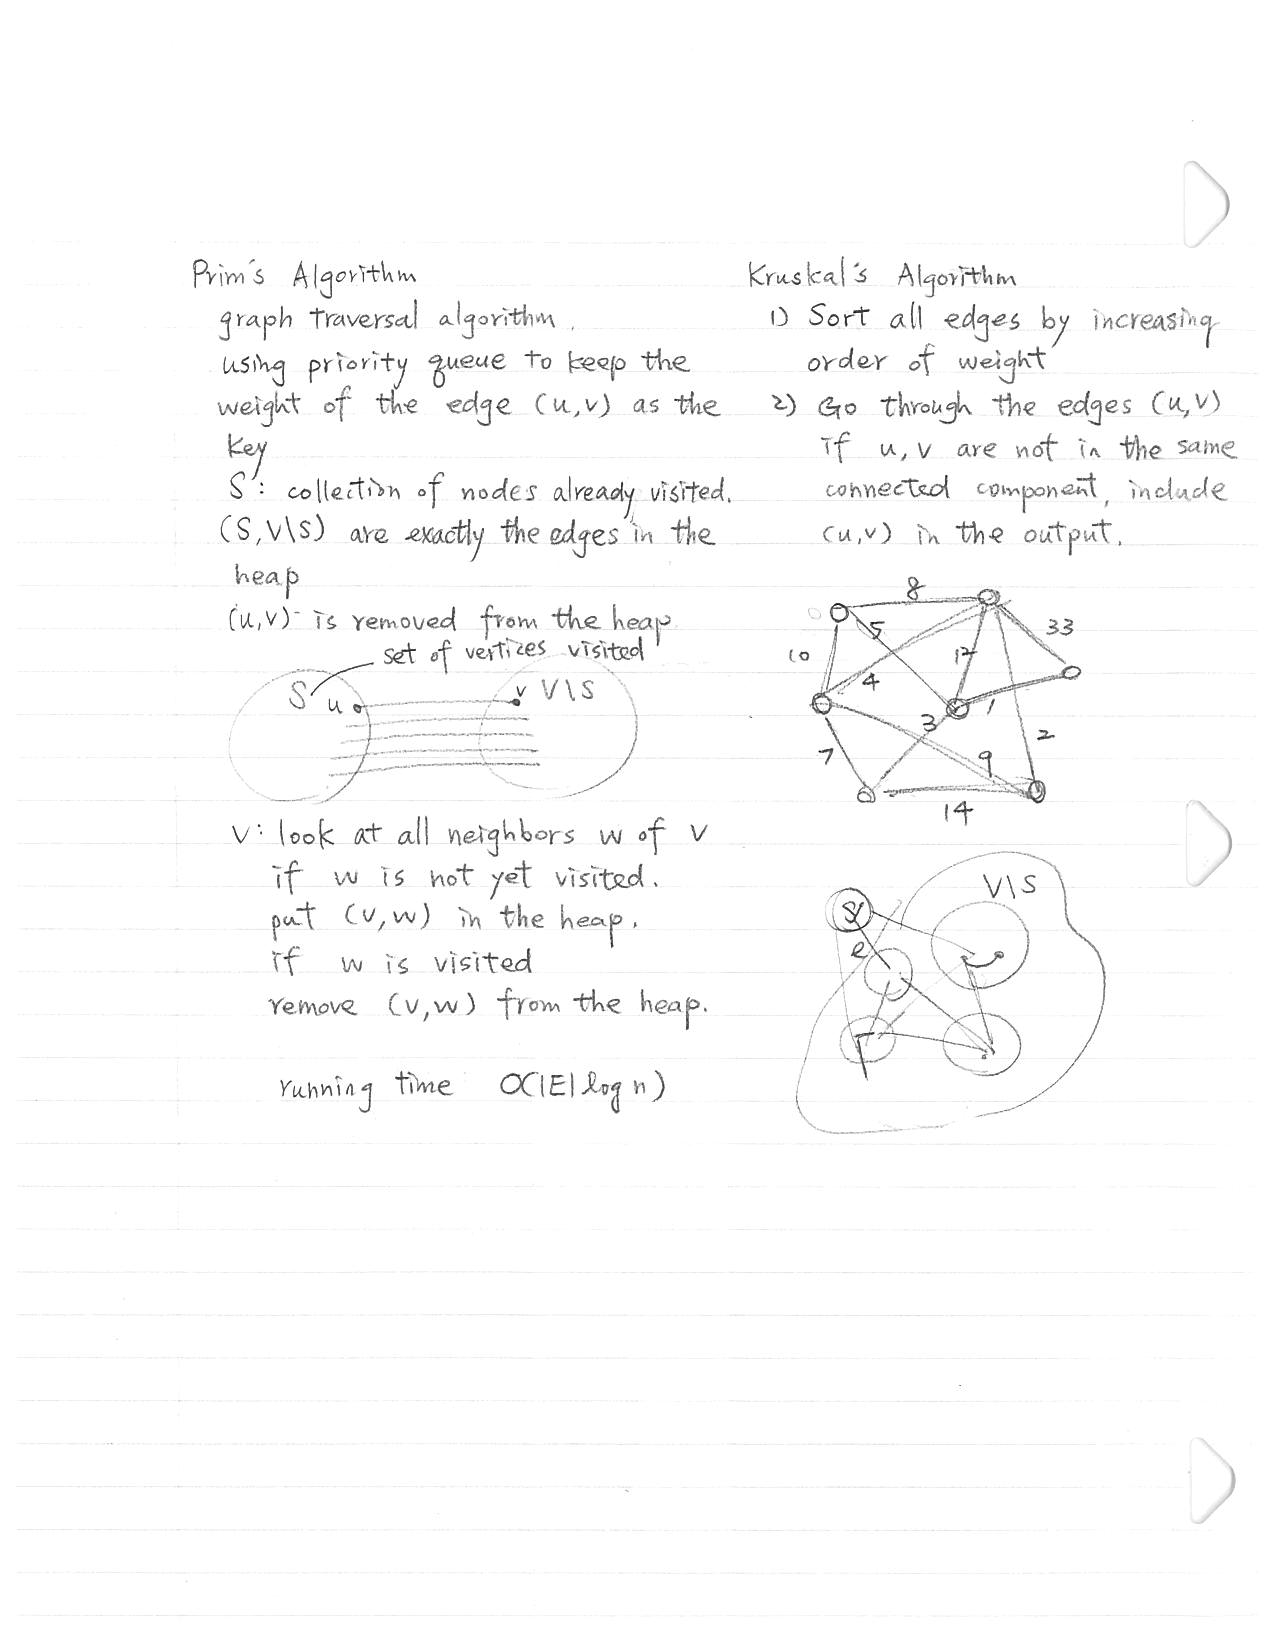 Prim's Algorithm
graph traversal algorithm.
using priority queue to keep the
weight of the edge (u,v) as the
key
S: collection of nodes already visited.
(S,V\S) are exactly the edges in the
heap
(u,v) is removed from the heap
set of vertices visited
S u v V\S
v: look at all neighbors w of v
if w is not yet visited.
put (v,w) in the heap.
if w is visited
remove (v,w) from the heap.
running time O(|E| log n)
Kruskal's Algorithm
1) Sort all edges by increasing
order of weight
2) Go through the edges (u,v)
if u,v are not in the same
connected component, include
(u,v) in the output.
8
5
33
10
12
4
3
1
2
7
9
14
V\S
S
e